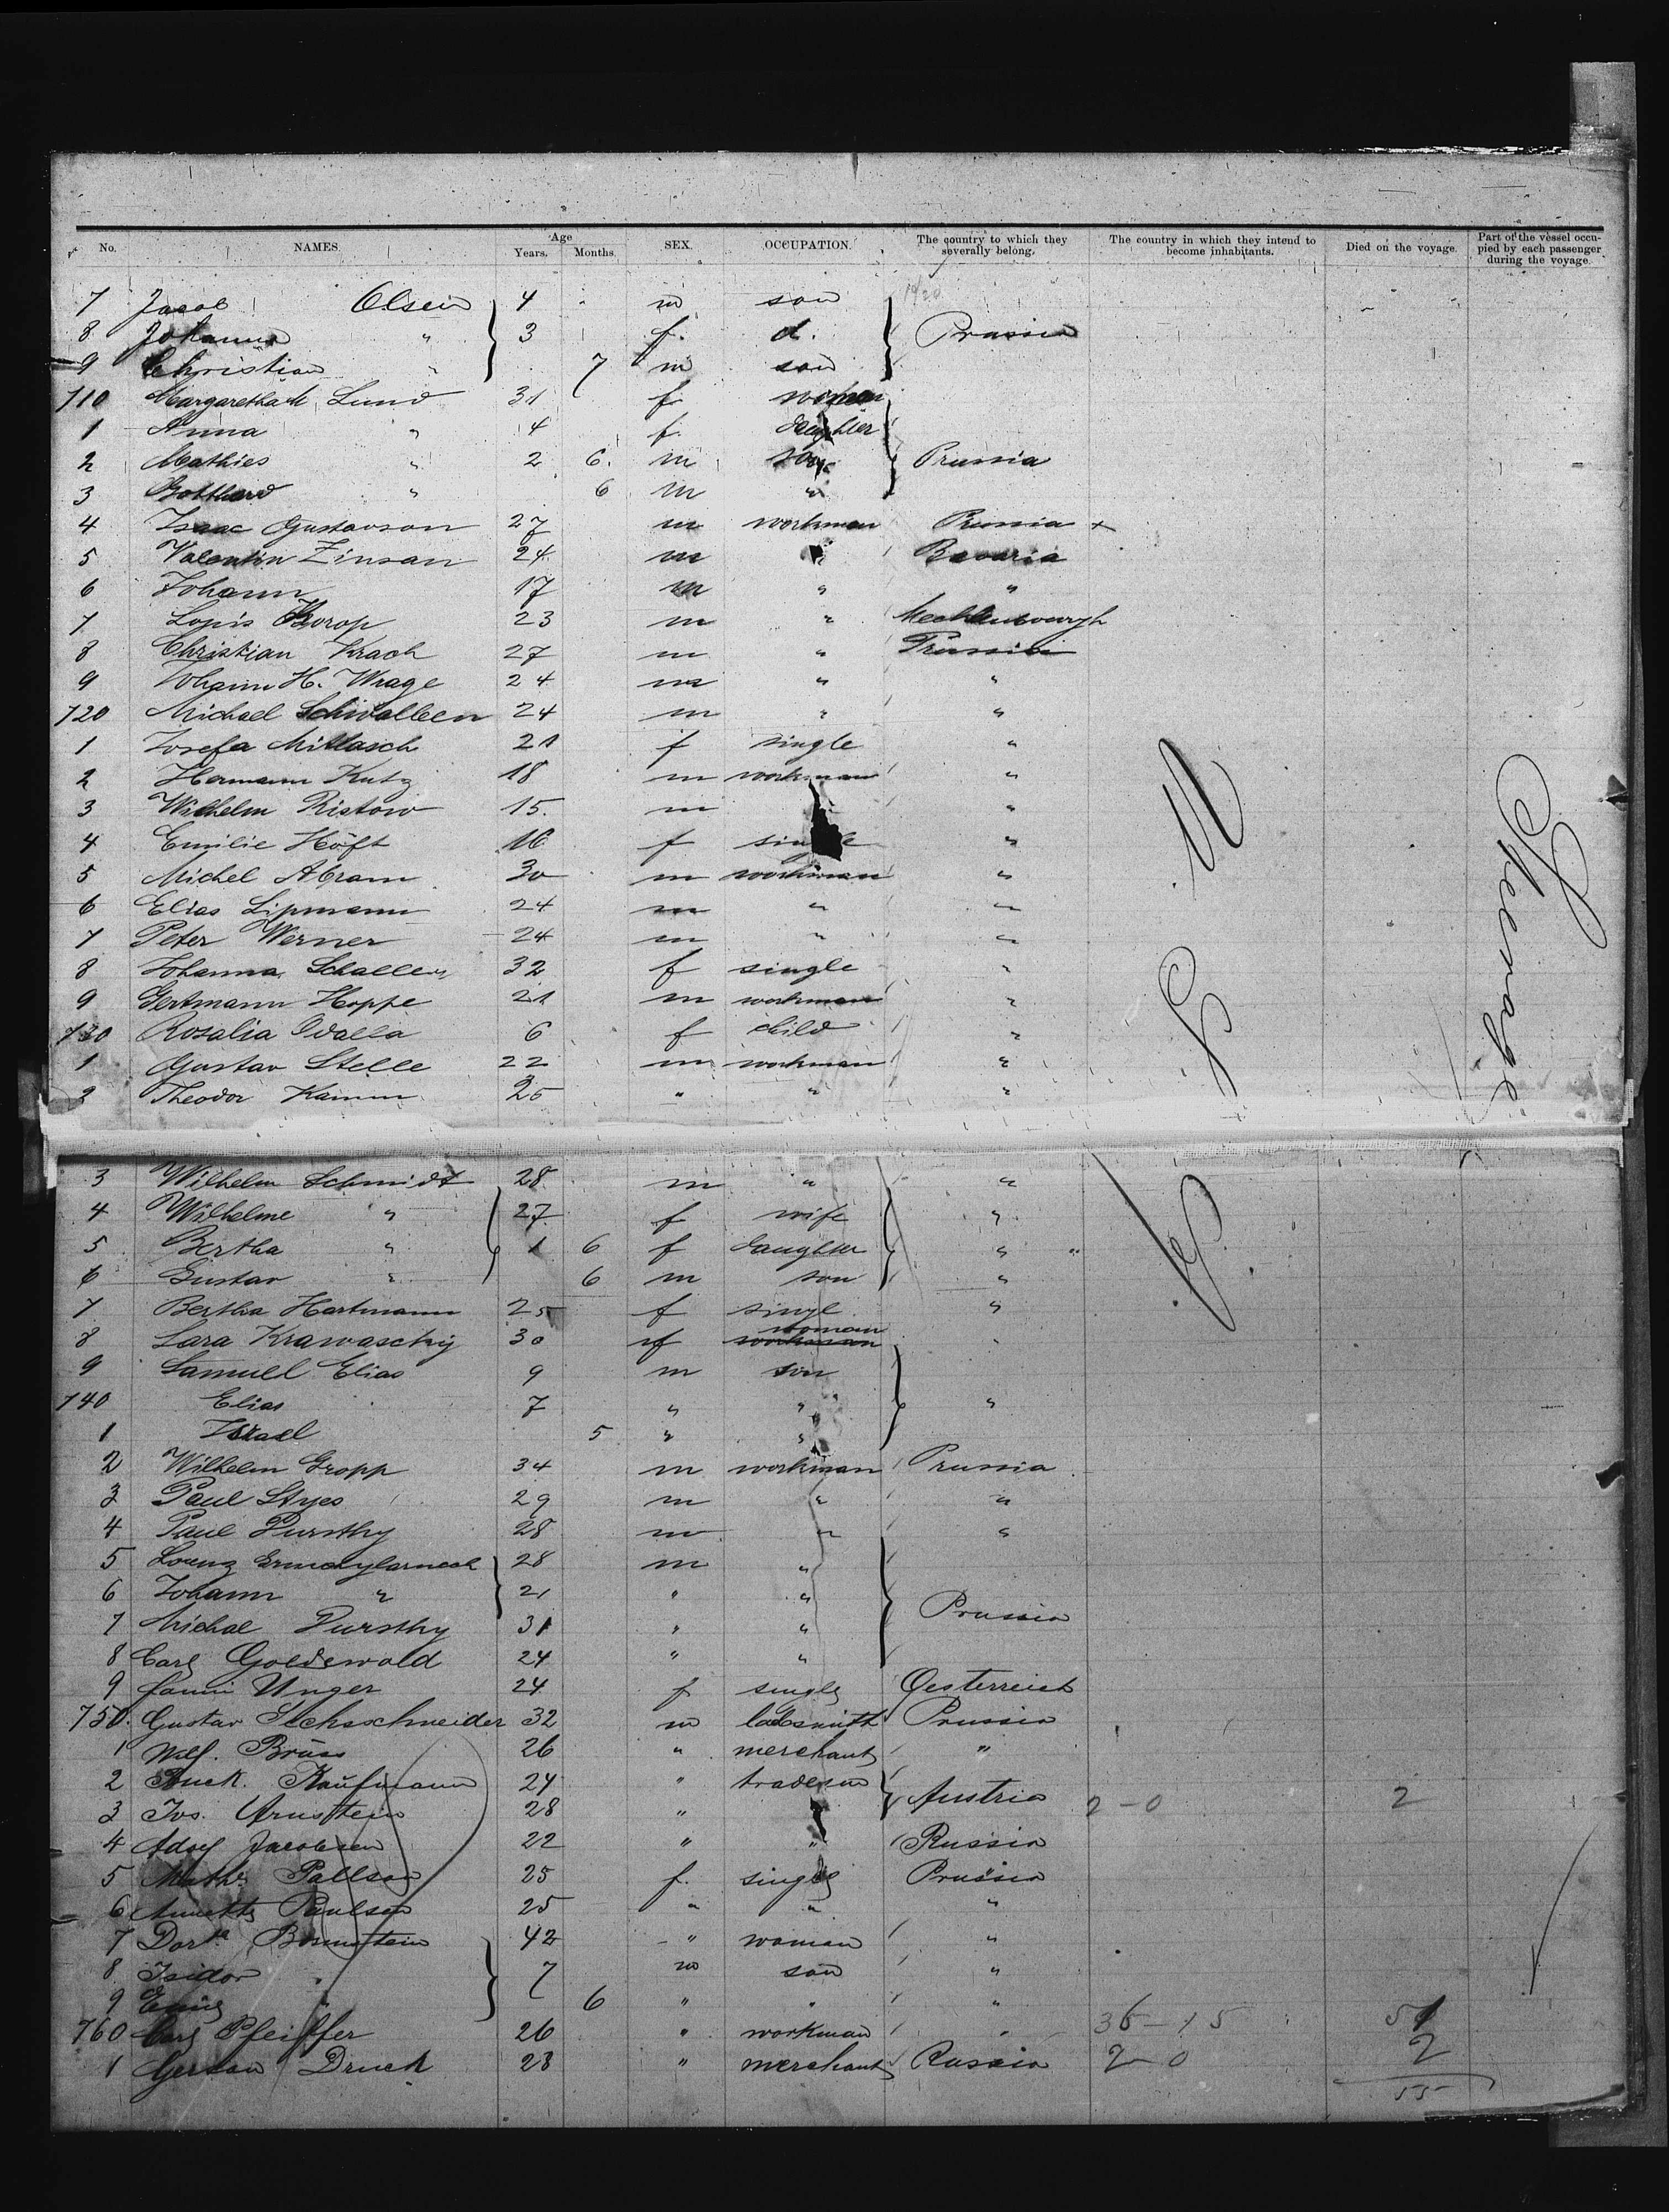 No. NAMES. Age Years. Months. SEX. OCCUPATION. The country to which they severally belong. The country in which they intend to become inhabitants. Died on the voyage. Part of the vessel occupied by each passenger during the voyage.
7 Jacob Olsen 4 m son
8 Johanna " 3 f. d. Prussia
9 Christian " 7 m son
710 Margaretha M Lund 31 f. woman
1 Anna " 4 f. daughter
2 Mathies " 2 6. m son Prussia
3 Botthard " 6 m "
4 Isaac Gustavson 27 m workman Prussia +
5 Valentin Zinsan 24 m " Bavaria
6 Johann 17 m " "
7 23 m "
8 Christian Krach 27 m " Prussia
9 Johann H. Wrage 24 m " "
720 Michael Schwalleen 24 m " "
1 Josefa Mittasch 21 f single "
2 Hermann Kutz 18 m workman "
3 Wilhelm Ristow 15. m "
4 Emilie Höft 16 f single "
5 Michel Abram 30 m workman "
6 Elias Lipmann 24 m " "
7 Peter Werner 24 m " "
8 Johanna Schaller 32 f single "
9 Gertmann Hoppe 21 m workman "
730 Rosalia Walla 6 f child "
1 Gustav Stelle 22 m workman "
2 Theodor Kamm 25 " " "
U. S.
Steerage
3 Wilhelm Schmidt 28 m " "
4 Wilhelme " 27 f wife "
5 Bertha " 1 6 f daughter " "
6 Gustav " 6 m son "
7 Bertha Hartmann 25 f singl "
8 Sara Krawaschy 30 f woman "
9 Samuel Elias 9 m son
740 Elias 7 " " "
1 Israel 5 " "
2 Wilhelm Gropp 34 m workman Prussia
3 Paul Styes 29 m " "
4 Paul Dursthy 28 m " "
5 Lorenz 28 m "
6 Johann " 21 " "
7 Michael Dursthy 31 " " Prussia
8 Carl Goldewald 24 " "
9 Fanni Unger 24 f single Oesterreich
750. Gustav Sechsschneider 32 m locksmith Prussia
1 Brüss 26 " merchant "
2 Kaufmann 24 " tradesm
3 Jos. Arnstein 28 " " Austria 2-0 2
4 Adolf Jacobsen 22 " " Russia
5 Math. Pallson 25 f. single Prussia
6 Annette Paulsen 25 " " "
7 Dort. Bornstein 42 " woman "
8 Isidor " 7 m son "
9 " 6 " " "
760 Carl Pfeiffer 26 " workman " 36-15 51
1 Gerson Druck 28 " merchant Russia 2-0 2
55